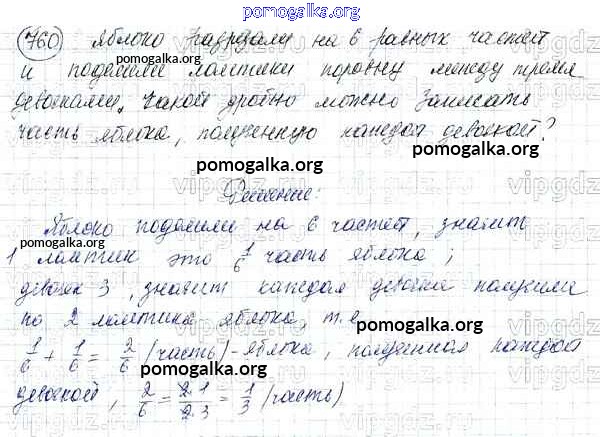 pomogalka.org
760 Яблоко разрезали на 6 равных частей
и поделили ломтики поровну между тремя
pomogalka.org
девочками. Какой дробью можно записать
часть яблока, полученную каждой девочкой?
pomogalka.org
pomogalka.org
Решение:
Яблоко поделили на 6 частей, значит
pomogalka.org
1 ломтик это 1/6 часть яблока;
девочек 3, значит каждая девочка получила
по 2 ломтика яблока, т.е.
pomogalka.org
1/6 + 1/6 = 2/6 (часть) - яблока, полученная каждой
девочкой, 2/6 = 2·1/2·3 = 1/3 (часть)
pomogalka.org
vipgdz